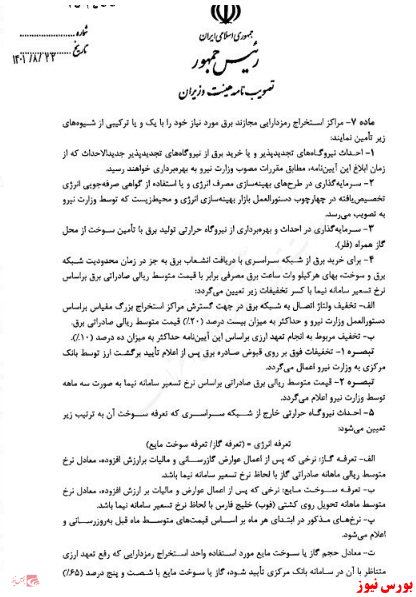 جمهوری اسلامی ایران
رئیس جمهور
تصویب نامه هیئت وزیران
شماره
تاریخ ۱۴۰۱/۸/۲۳
ماده ۷- مراکز استخراج رمزدارایی مجازند برق مورد نیاز خود را با یک و یا ترکیبی از شیوه‌های
زیر تأمین نمایند:
۱- احداث نیروگاه‌های تجدیدپذیر و یا خرید برق از نیروگاه‌های تجدیدپذیر جدیدالاحداث که از
زمان ابلاغ این آیین‌نامه، مطابق مقررات مصوب وزارت نیرو به بهره‌برداری خواهند رسید.
۲- سرمایه‌گذاری در طرح‌های بهینه‌سازی مصرف انرژی و یا استفاده از گواهی صرفه‌جویی انرژی
تخصیص‌یافته در چهارچوب دستورالعمل بازار بهینه‌سازی انرژی و محیط‌زیست که توسط وزارت نیرو
به تصویب می‌رسد.
۳- سرمایه‌گذاری در احداث و بهره‌برداری از نیروگاه حرارتی تولید برق با تأمین سوخت از محل
گاز همراه (فلر).
۴- برای خرید برق از شبکه سراسری با دریافت انشعاب برق به جز در زمان محدودیت شبکه
برق و سوخت، بهای هرکیلو وات ساعت برق مصرفی برابر با قیمت متوسط ریالی صادراتی برق براساس
نرخ تسعیر سامانه نیما با کسر تخفیفات زیر تعیین می‌گردد:
الف- تخفیف ولتاژ اتصال به شبکه برق در جهت گسترش مراکز استخراج بزرگ مقیاس براساس
دستورالعمل وزارت نیرو و حداکثر به میزان بیست درصد (۲۰٪) قیمت متوسط ریالی صادراتی برق.
ب- تخفیف مربوط به انجام تعهد ارزی براساس این آیین‌نامه حداکثر به میزان ده درصد (۱۰٪).
تبصره ۱- تخفیفات فوق بر روی قبوض صادره برق پس از اعلام تأیید برگشت ارز توسط بانک
مرکزی به وزارت نیرو اعمال می‌گردد.
تبصره ۲- قیمت متوسط ریالی برق صادراتی براساس نرخ تسعیر سامانه نیما به صورت سه ماهه
توسط وزارت نیرو اعلام می‌گردد.
۵- احداث نیروگاه حرارتی خارج از شبکه سراسری که تعرفه سوخت آن به ترتیب زیر
تعیین می‌شود:
تعرفه انرژی = (تعرفه گاز/ تعرفه سوخت مایع)
الف- تعرفه گاز: نرخی که پس از اعمال عوارض گازرسانی و مالیات برارزش افزوده، معادل نرخ
متوسط ریالی ماهانه صادراتی گاز با لحاظ نرخ تسعیر سامانه نیما باشد.
ب- تعرفه سوخت مایع: نرخی که پس از اعمال عوارض و مالیات بر ارزش افزوده، معادل نرخ
متوسط ماهانه تحویل روی کشتی (فوب) خلیج فارس با لحاظ نرخ تسعیر سامانه نیما باشد.
پ- نرخ‌های مذکور در ابتدای هر ماه بر اساس قیمت‌های متوسط ماه قبل به‌روزرسانی و
اعلام می‌شود.
ت- معادل حجم گاز یا سوخت مایع مورد استفاده واحد استخراج رمزدارایی که رفع تعهد ارزی
متناظر با آن در سامانه بانک مرکزی تأیید شود، گاز یا سوخت مایع با شصت و پنج درصد (۶۵٪)
بورس نیوز